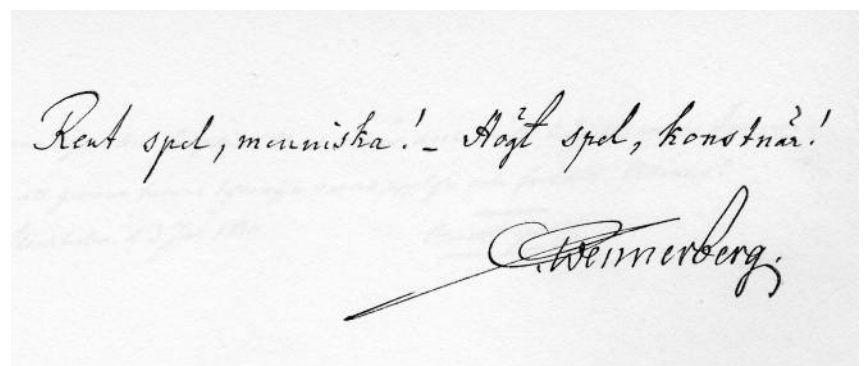 Rent spel, menniska! _ Högt spel, konstnär!
G. Wennerberg.